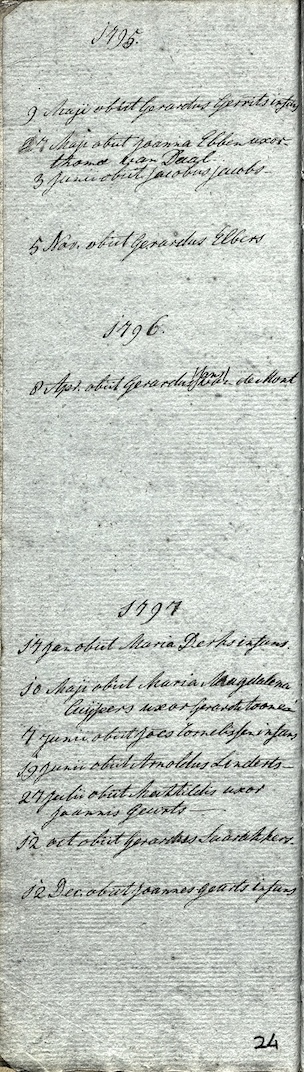 1795.
9 Maji obiit Gerardus Gerrits infans
27 Maji obiit Joanna Ebben uxor
thomæ van Daal
3 Junii obiit Jacobus Jacobs
5 Nov. obiit Gerardus Elbers
1796.
8 Apr. obiit Gerardus (Jans) de Mont
1797
17 Jan obiit Maria Derks infans.
10 Maji obiit Maria Magdalena
Cuijpers uxor Gerardi
7 Junii obiit Jacs Cornelissen infans
19 Junii obiit Arnoldus Linderts
27 Julii obiit Mechtildis uxor
Joannis Geurts
12 oct obiit Gerardus
12 Dec. obiit Joannes Geurts infans
24